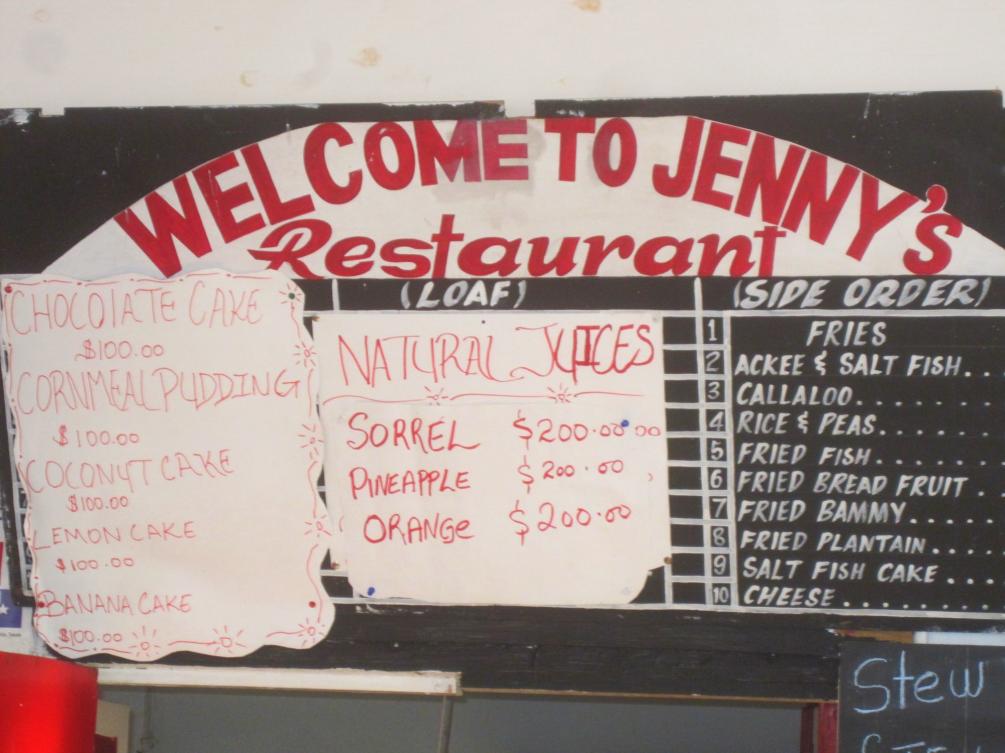 WELCOME TO JENNY'S
Restaurant
CHOCOLATE CAKE
$100.00
CORNMEAL PUDDING
$100.00
COCONUT CAKE
$100.00
LEMON CAKE
$100.00
BANANA CAKE
$100.00
(LOAF)
NATURAL JUICES
SORREL $200.00 00
PINEAPPLE $200.00
ORANGE $200.00
(SIDE ORDER)
1 FRIES
2 ACKEE & SALT FISH...
3 CALLALOO.......
4 RICE & PEAS......
5 FRIED FISH......
6 FRIED BREAD FRUIT .
7 FRIED BAMMY.....
8 FRIED PLANTAIN....
9 SALT FISH CAKE ...
10 CHEESE........
Stew